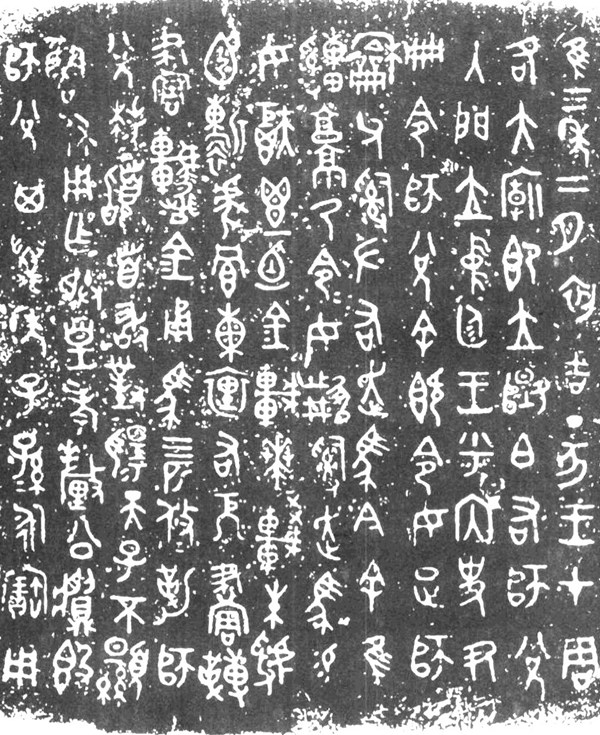 隹三年二月初吉丁亥王才周
各大廟即立𨟭白右師兌
入門立中廷王乎內史尹
冊令師兌余既令女疋師
龢父𤔲左右走馬今余隹
乃令令女𤔲走馬易
女秬鬯一卣金車較朱虢
靳虎冟熏裏右厄畫
畫金甬馬四匹攸勒師
兌拜首敢對揚天子不顯
魯休用乍朕皇考釐公𣪘
師兌其萬年子子孫孫永寶用